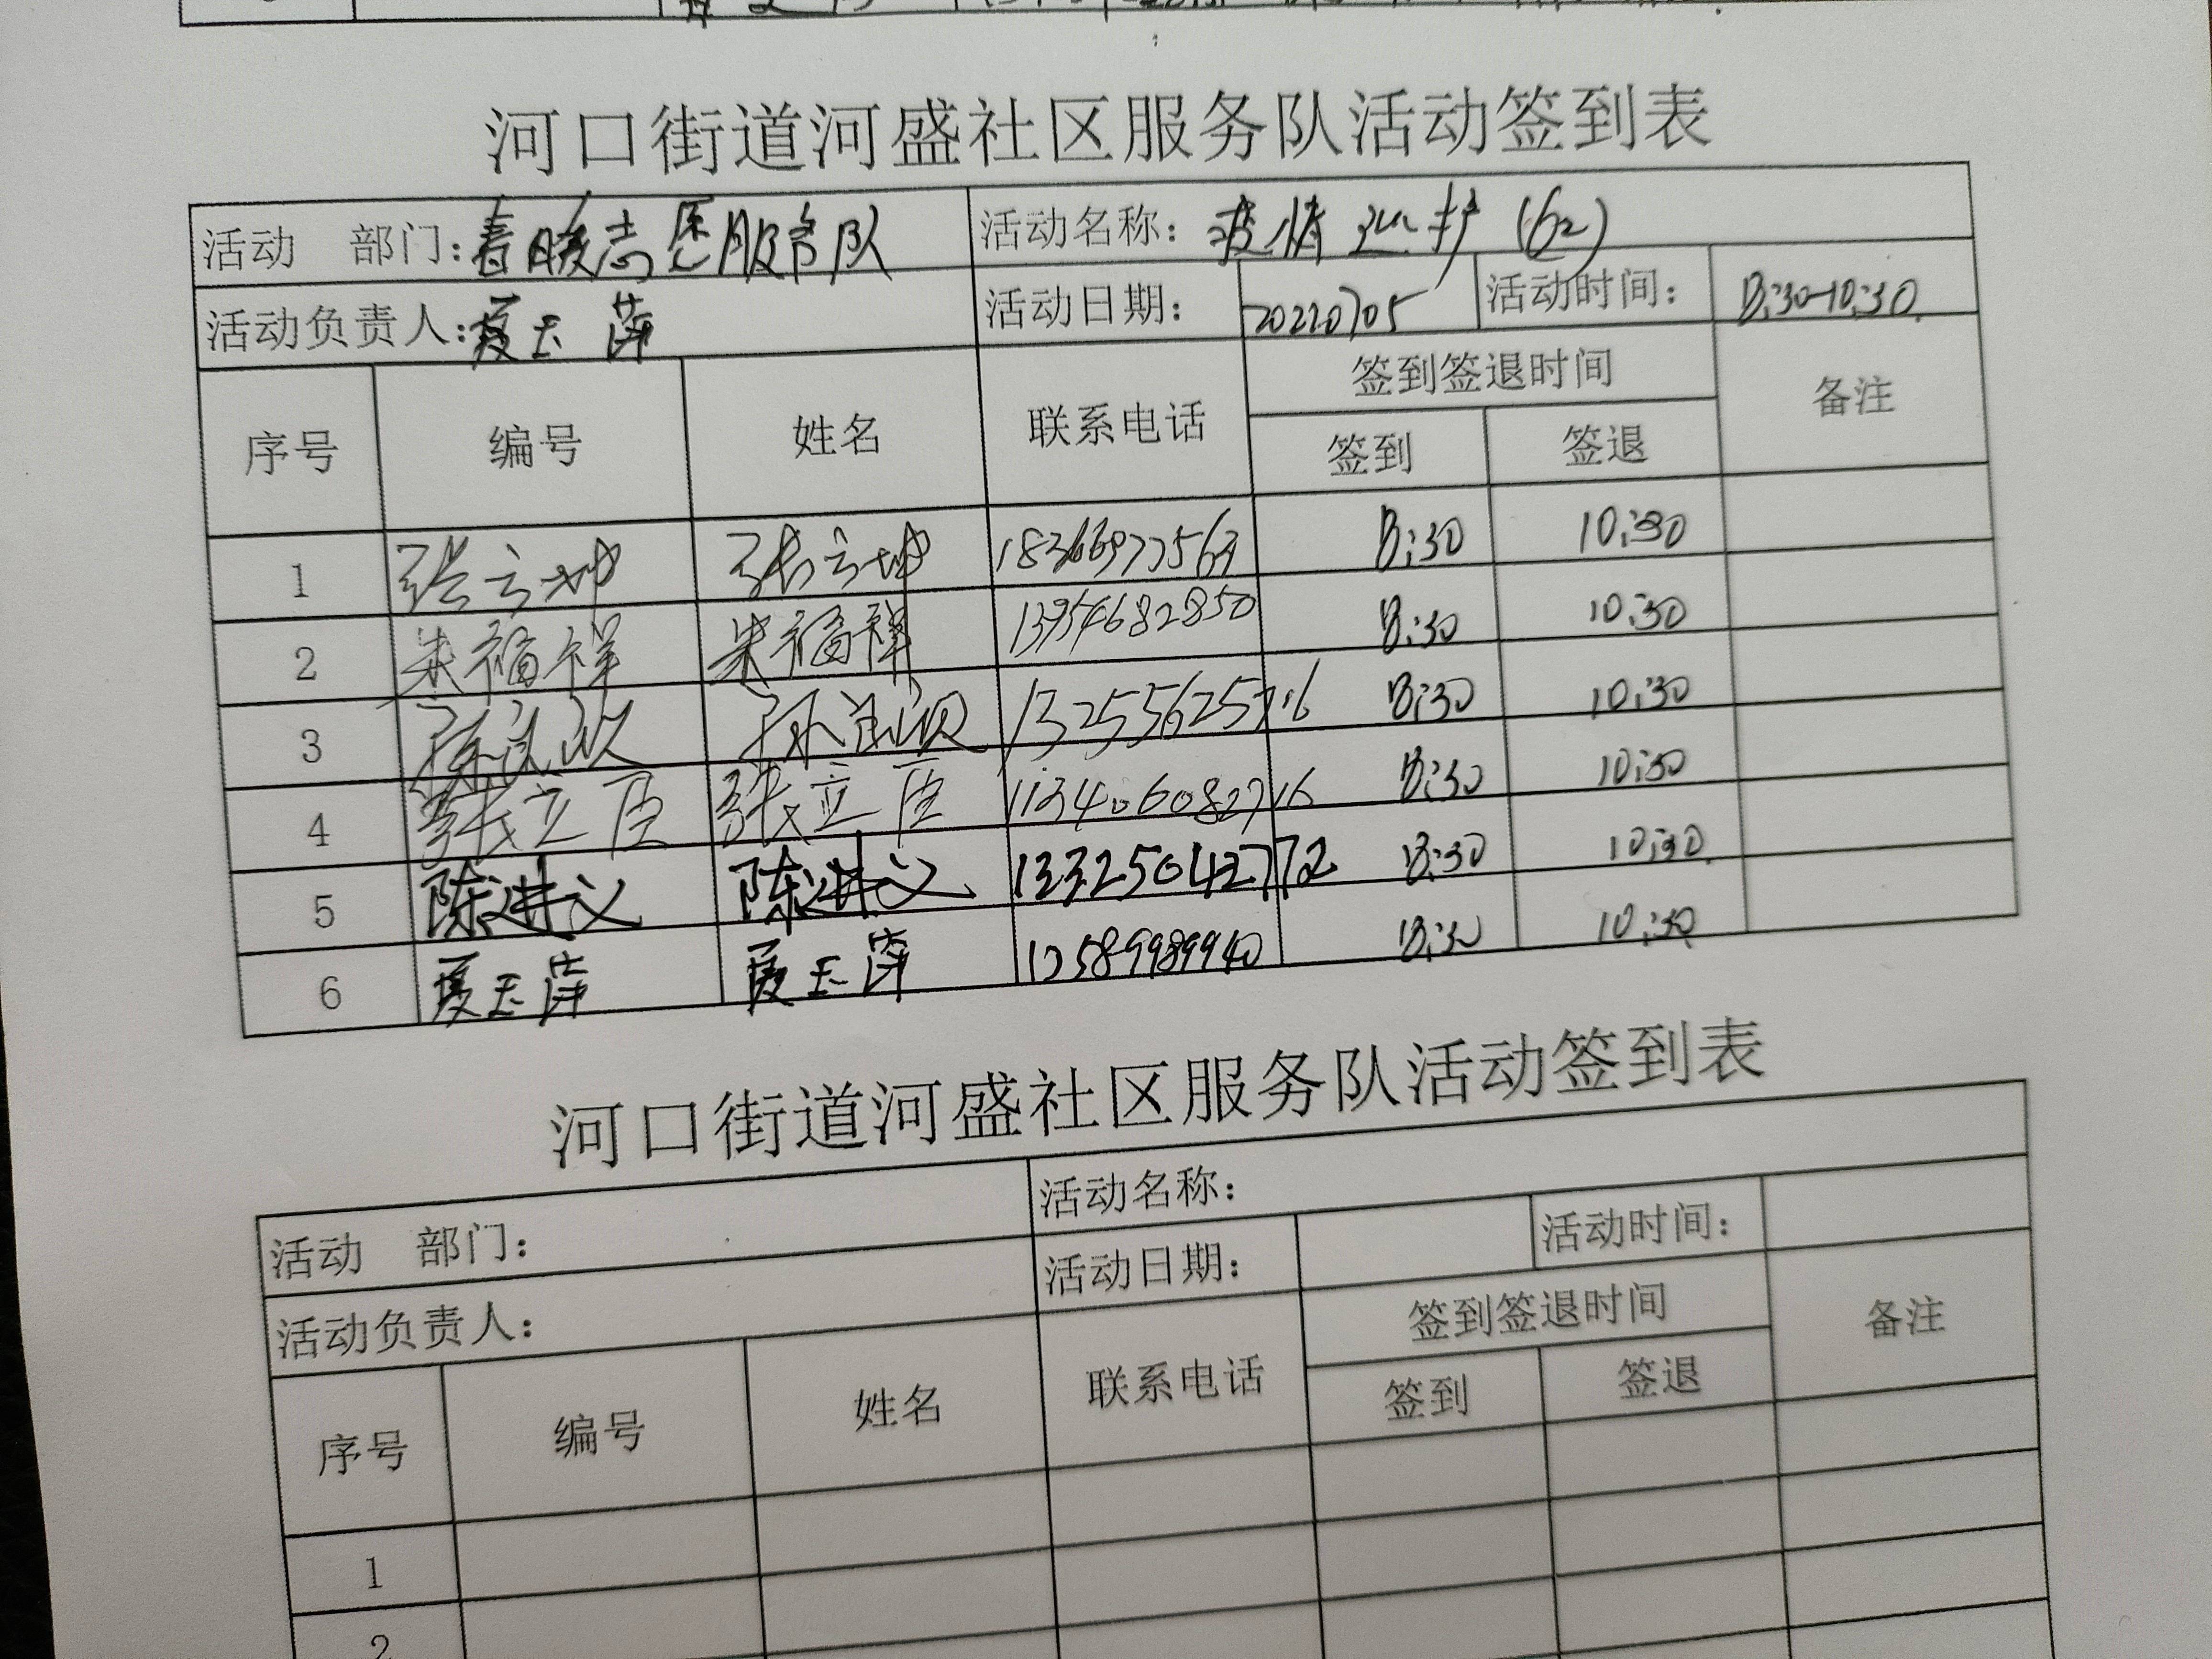 河口街道河盛社区服务队活动签到表
活动 部门：春暖志愿服务队 活动名称：疫情巡护(62)
活动负责人：夏玉萍 活动日期： 20220705 活动时间： 8:30-10:30
序号 编号 姓名 联系电话 签到签退时间 备注
签到 签退
1 张立坤 张立坤 8:30 10:30
2 朱福祥 朱福祥 13954682850 8:30 10:30
3 13255625716 8:30 10:30
4 张立臣 张立臣 13406082716 8:30 10:30
5 陈进义 陈进义 13325042772 8:30 10:30
6 夏玉萍 夏玉萍 13589989940 8:30 10:30
河口街道河盛社区服务队活动签到表
活动 部门： 活动名称：
活动负责人： 活动日期： 活动时间：
序号 编号 姓名 联系电话 签到签退时间 备注
签到 签退
1
2